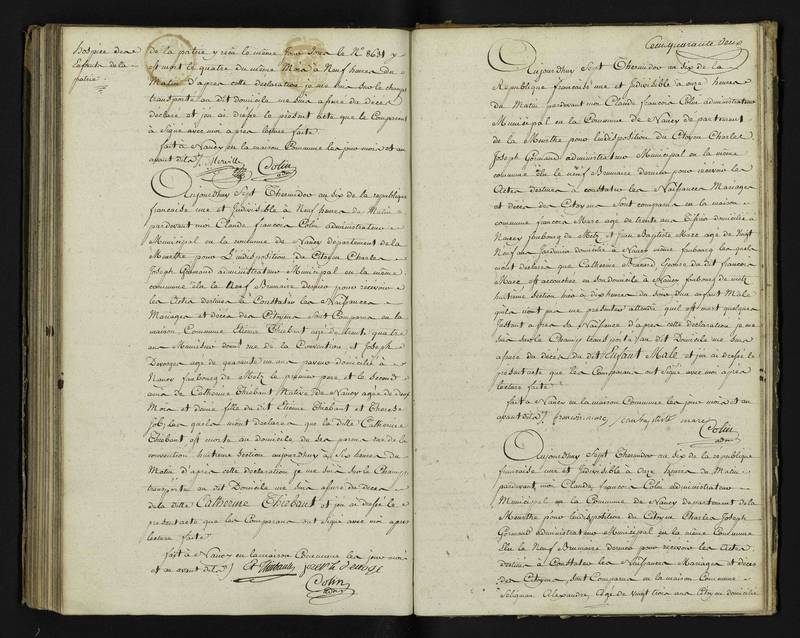 Hospice des
Enfants de la
patrie
de la patrie y reçu le même jour sous le No 8631 y
est mort le quatre du même Mois à Neuf heures Du
Matin d'après cette déclaration je me suis sur le champ
transporté au dit domicile me suis assuré de décès
déclaré et j'ai dressé le présent acte que le Comparant
à Signé avec moi après lecture faite
fait à Nancy en la maison Commune les jour mois et an
avant dits
Colin
Aujourdhuy Sept Thermidor an six de la republique
francoise une et Indivisible à Neuf heures du Matin
pardevant moi Claude francois Colin administrateur
Municipal en la commune de Nancy departement de la
Meurthe pour L'indisposition du Citoyen Charles
Joseph Gormand administrateur Municipal en la même
commune élû le Neuf Brumaire dernier pour recevoir
les Actes destinés à Constater les Naissances
Mariages et décès des Citoyens Sont Comparus en la
maison Commune Etienne Thiebaut agé de trente quatre
ans Menuisier demt rue de la Convention, et Joseph
agé de quarante un ans paveur domicilié à
Nancy faubourg de Metz le premier pere et le Second
ami de Catherine Thiébaut Native de Nancy agée de deux
Mois et demie fille du dit Etienne Thiebaut et Therese
Job, les quels m'ont déclaré que la ditte Catherine
Thiebaut est morte au domicile du dit son pere rue de la
convention huitieme Section aujourdhuy à Six heures du
Matin d'après cette déclaration je me suis Sur le Champ
transporté au dit Domicile me suis assuré du décès
de la ditte Catherine Thiebaut et j'ai dressé le
présent acte que les Comparans ont Signé avec moi après
lecture faite
fait à Nancy en la maison Commune les jour mois
et an avant dits
Colin
Cent quarante deux
Aujourdhuy Sept Thermidor an six de la
Republique francoise une et Indivisible à onze heures
du Matin pardevant moi Claude francois Colin administrateur
Municipal en la Commune de Nancy departement
de la Meurthe pour lindisposition du Citoyen Charles
Joseph Gormand administrateur Municipal en la même
commune élû le neuf Brumaire dernier pour recevoir les
Actes destinés à constater les Naissances Mariages
et décès des Citoyens Sont comparus en la maison
commune francois Marc agé de trente ans domicilié à
Nancy faubourg de Metz et Jean Baptiste Marc agé de Vingt
Neuf ans Jardinier domicilié à Nancy même faubourg les quels
m'ont déclaré que Catherine Epouse du dit francois
Marc est accouchée en son domicile à Nancy faubourg de metz
huitieme Section hier à dix heures du soir d'un enfant Male
qu'ils n'ont pu me présenter attendu quil est mort quelques
instant après sa Naissance d'après cette déclaration je me
suis Sur le Champ transporté au dit Domicile me suis
assuré du décès du dit Enfant Male et j'ai dressé le
présent acte que les Comparans ont Signé avec moi après
lecture faite
fait à Nancy en la maison Commune les jour mois et an
avant dits francois marc jean baptiste marc
Colin
Aujourdhuy Sept Thermidor an six de la republique
francaise une et Indivisible à Onze heures du Matin
pardevant moi Claude francois Colin administrateur
Municipal en la Commune de Nancy departement de la
Meurthe pour lindisposition du Citoyen Charles Joseph
Gormand administrateur Municipal en la même Commune
élu le Neuf Brumaire dernier pour recevoir les Actes
destinés à Constater les Naissances Mariages et décès
des Citoyens Sont Comparus en la maison Commune
Seligman Alexandre, Agé de vingt trois ans Citoyen domicilié